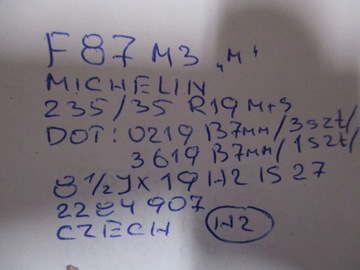 F87 M3 „M"
MICHELIN
235/35 R19 M+S
DOT: 0219 B7mm/3szt/
3619 B7mm/1szt/
8 1/2 JX 19 H2 IS 27
2284 907
CZECH H2